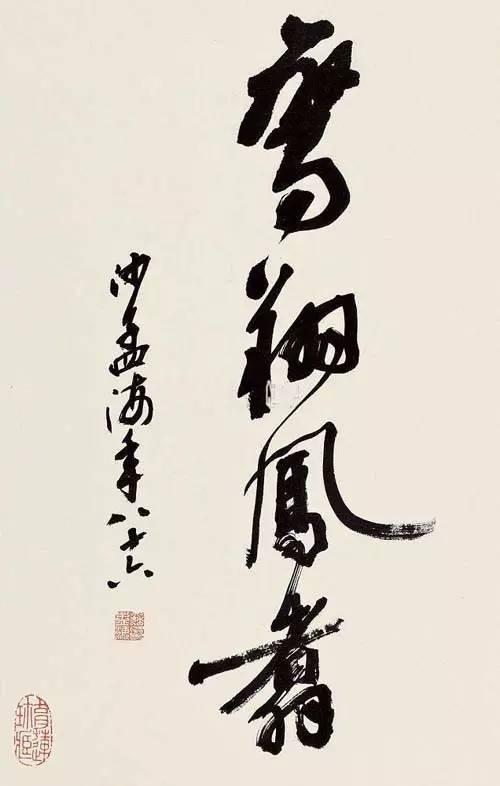 鸞翔鳳翥
沙孟海年八十六